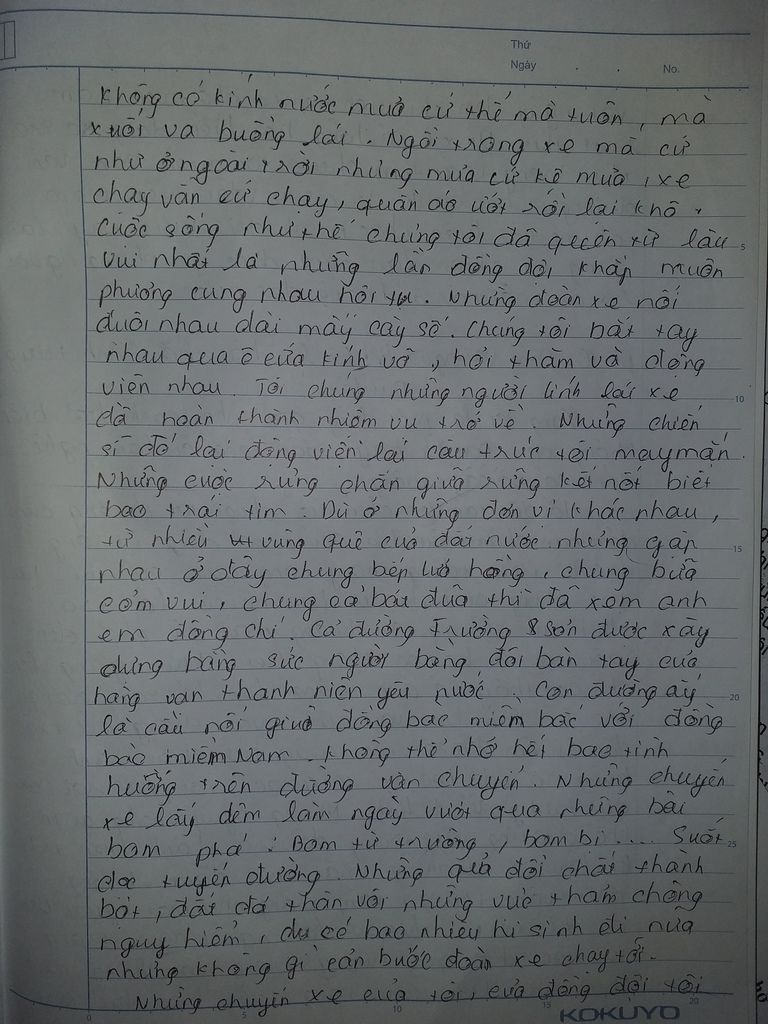 Thứ
Ngày . . No.
Không có kính nước mưa cứ thế mà tuôn, mà
xuối va buồng lái. Ngồi trong xe mà cứ
như ở ngoài trời nhưng mưa cứ kê mưa, xe
chay vẫn cứ chay, quần áo ướt rồi lai khô.
Cuôc sống như thế chúng tôi đã quen từ lâu 5
Vui nhất là những lần đồng đôi khắp muôn
phương cung nhau hôi tụ. Những đoàn xe nối
đuôi nhau dài mấy cây số. Chúng tôi bắt tay
nhau qua ô cửa kính vỡ, hỏi thăm và động
viên nhau. Tôi chung những người lính lái xe 10
đã hoàn thành nhiêm vu trở về. Những chiến
sĩ đó lai đông viên lai cầu trúc tôi may mắn.
Những cuôc rừng chắn giữa rừng kết nốt biết
bao trái tim. Dù ở những đơn vi khác nhau,
từ nhiều vung quê của đất nước nhưng găp 15
nhau ở đây chung bếp lưả hồng, chung bữa
cơm vui, chung cả bát đuã thì đã xem anh
em đồng chí. Cả đường Trường Sơn được xây
dưng bằng sức người bằng đôi bàn tay của
hàng van thanh niên yêu nước. Con đường ấy 20
là cầu nối giữa đồng bac miềm bắc với đồng
bào miềm Nam. Không thể nhớ hết bao tình
huống trên đường vân chuyển. Những chuyến
xe lấy đêm làm ngày vươt qua những bãi
bom phá: Bom từ trường, bom bi.... Suốt 25
doc tuyến đường. Những quả đồi chất thành
bôt, đất đá thân với những vưc thẳm chông
nguy hiểm, du có bao nhiêu hi sinh đi nữa
nhưng không gì cản bước đoàn xe chay tới.
Những chuyến xe cuả tôi, cuả đồng đôi tôi
0 5 10 15 20
KOKUYO